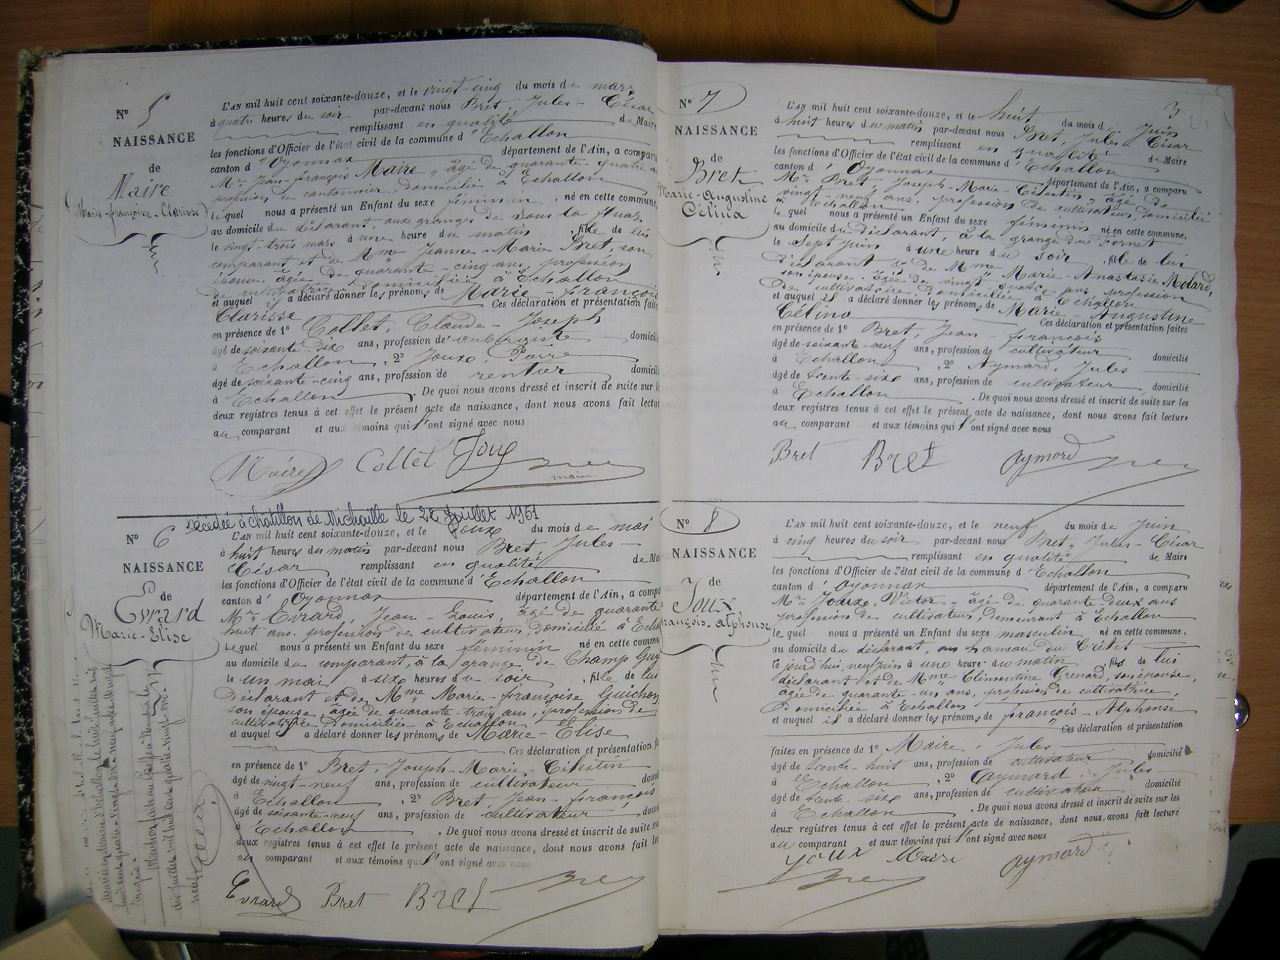 Nº 5
NAISSANCE
de
Maire
(Marie-françoise-Clarisse)
L'AN mil huit cent soixante-douze, et le vingt-cinq du mois de mars
à quatre heures du soir par-devant nous Bret, Jules-César
remplissant en qualité de Maire
les fonctions d'Officier de l'état civil de la commune d'Echallon
canton d'Oyonnax département de l'Ain, a comparu
Mr Jean-françois Maire, âgé de quarante quatre
profession de cantonnier domicilié à Echallon
lequel nous a présenté un Enfant du sexe féminin, né en cette commune
au domicile du déclarant, aux granges de sous la
le vingt-trois mars à une heure du matin, fille de lui
comparant et de Mme Jeanne-Marie Bret, son
épouse, âgée de quarante-cinq ans, profession
de domiciliée à Echallon
et auquel il a déclaré donner les prénoms de Marie-françoise
Clarisse Ces déclaration et présentation faites
en présence de 1º Collet, Claude-Joseph
âgé de soixante dix ans, profession d'aubergiste domicilié
à Echallon, 2º Joux, Pierre
âgé de soixante-cinq ans, profession de rentier domicilié
à Echallon. De quoi nous avons dressé et inscrit de suite sur les
deux registres tenus à cet effet le présent acte de naissance, dont nous avons fait lecture
au comparant et aux témoins qui l'ont signé avec nous
Maire Collet Joux Bret
maire
Nº 6
Décédée à Chatillon de Michaille le 22 Juillet 1951
NAISSANCE
de
Evrard
Marie-Elise
L'AN mil huit cent soixante-douze, et le deux du mois de mai
à huit heures du matin par-devant nous Bret, Jules-
César remplissant en qualité de Maire
les fonctions d'Officier de l'état civil de la commune d'Echallon
canton d'Oyonnax département de l'Ain, a comparu
Mr Evrard, Jean-Louis, âgé de quarante
huit ans, profession de cultivateur, domicilié à Echallon
lequel nous a présenté un Enfant du sexe féminin né en cette commune
au domicile du comparant, à la grange de Champ
le un mai à six heures du soir, fille de lui
déclarant et de Mme Marie-françoise Guichon
son épouse, âgée de quarante-trois ans, profession de
cultivatrice domiciliée à Echallon
et auquel il a déclaré donner les prénoms de Marie-Elise
Ces déclaration et présentation
en présence de 1º Bret, Joseph-Marie-Célestin
âgé de vingt-neuf ans, profession de cultivateur
à Echallon, 2º Bret, Jean-françois
âgé de soixante-neuf ans, profession de cultivateur
à Echallon. De quoi nous avons dressé et inscrit de suite sur
deux registres tenus à cet effet le présent acte de naissance, dont nous avons fait
au comparant et aux témoins qui l'ont signé avec nous
Evrard Bret Bret Bret
3
Nº 7
NAISSANCE
de
Bret
Marie-Augustine
Célina
L'AN mil huit cent soixante-douze, et le huit du mois de Juin
à huit heures du matin par-devant nous Bret, Jules César
remplissant en qualité de Maire
les fonctions d'Officier de l'état civil de la commune d'Echallon
canton d'Oyonnax département de l'Ain, a comparu
Mr Bret, Joseph-Marie-Célestin, âgé de
vingt-neuf ans, profession de cultivateur, domicilié
à Echallon
lequel nous a présenté un Enfant du sexe féminin né en cette commune.
au domicile du déclarant, à la grange du Tornet
le sept juin à une heure du soir, fille de lui
déclarant et de Mme Marie-Anastasie Molard,
son épouse, âgée de vingt quatre ans, profession
de cultivatrice domiciliée à Echallon
et auquel il a déclaré donner les prénoms de Marie-Augustine
Célina Ces déclaration et présentation faites
en présence de 1º Bret, Jean-françois
âgé de soixante-neuf ans, profession de cultivateur domicilié
à Echallon, 2º Aymard, Jules
âgé de trente-six ans, profession de cultivateur domicilié
à Echallon. De quoi nous avons dressé et inscrit de suite sur les
deux registres tenus à cet effet le présent acte de naissance, dont nous avons fait lecture
au comparant et aux témoins qui l'ont signé avec nous
Bret Bret Aymard Bret
Nº 8
NAISSANCE
de
Joux
françois-alphonse
L'AN mil huit cent soixante-douze, et le neuf du mois de Juin
à cinq heures du soir par-devant nous Bret, Jules-César
remplissant en qualité de Maire
les fonctions d'Officier de l'état civil de la commune d'Echallon
canton d'Oyonnax département de l'Ain, a comparu
Mr Joux, Victor, âgé de quarante deux ans
profession de cultivateur, demeurant à Echallon
lequel nous a présenté un Enfant du sexe masculin né en cette commune.
au domicile du déclarant, au hameau du Crétet
le jourd'hui, neuf juin à une heure du matin, fils de lui
déclarant et de Mme Clémentine Grenard, son épouse,
âgée de quarante-un ans, profession de cultivatrice,
Domiciliée à Echallon
et auquel il a déclaré donner les prénoms de françois-Alphonse
Ces déclaration et présentation
faites en présence de 1º Maire, Jules
âgé de trente-huit ans, profession de cultivateur domicilié
à Echallon, 2º Aymard Jules
âgé de trente six ans, profession de cultivateur domicilié
à Echallon. De quoi nous avons dressé et inscrit de suite sur les
deux registres tenus à cet effet le présent acte de naissance, dont nous avons fait lecture
au comparant et aux témoins qui l'ont signé avec nous
Joux Maire Aymard
Bret